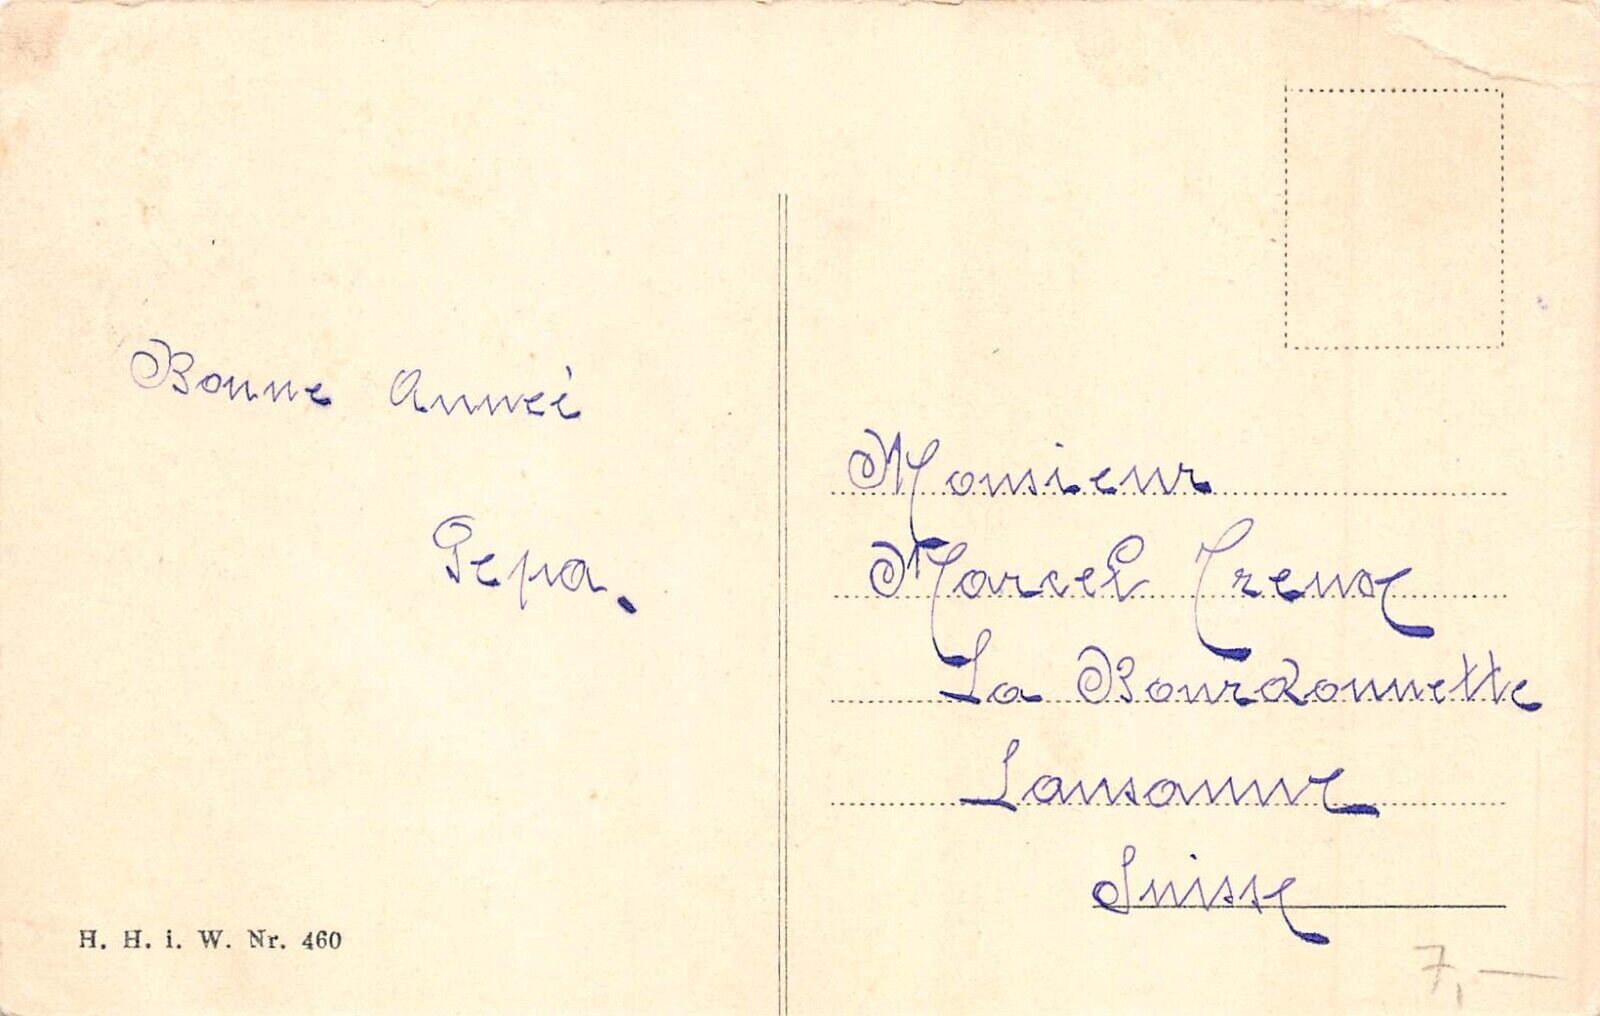 Bonne Année
Pepa.
H. H. i. W. Nr. 460
Monsieur
Marcel Treux
La Bourdonnette
Lausanne
Suisse
7,—